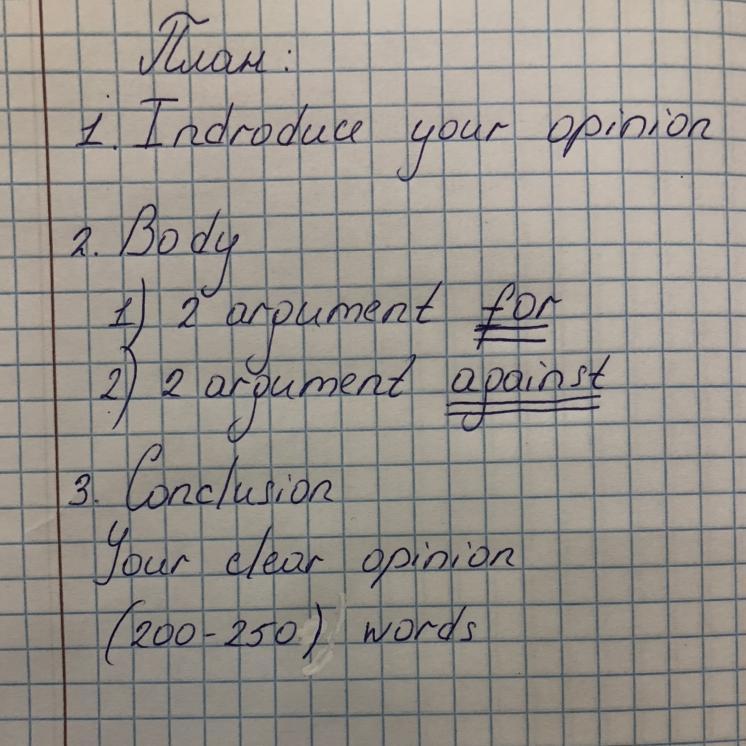 План:
1. Indroduce your opinion
2. Body
1) 2 argument for
2) 2 argument against
3. Conclusion
Your clear opinion
(200-250) words